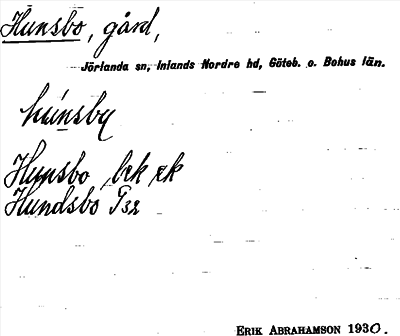 Hunsbo, gård,
Jörlanda sn, Inlands Nordre hd, Göteb. o. Bohus län.
húnsbo
Hunsbo, brk ek
Hundsbo G32
ERIK ABRAHAMSON 1930.